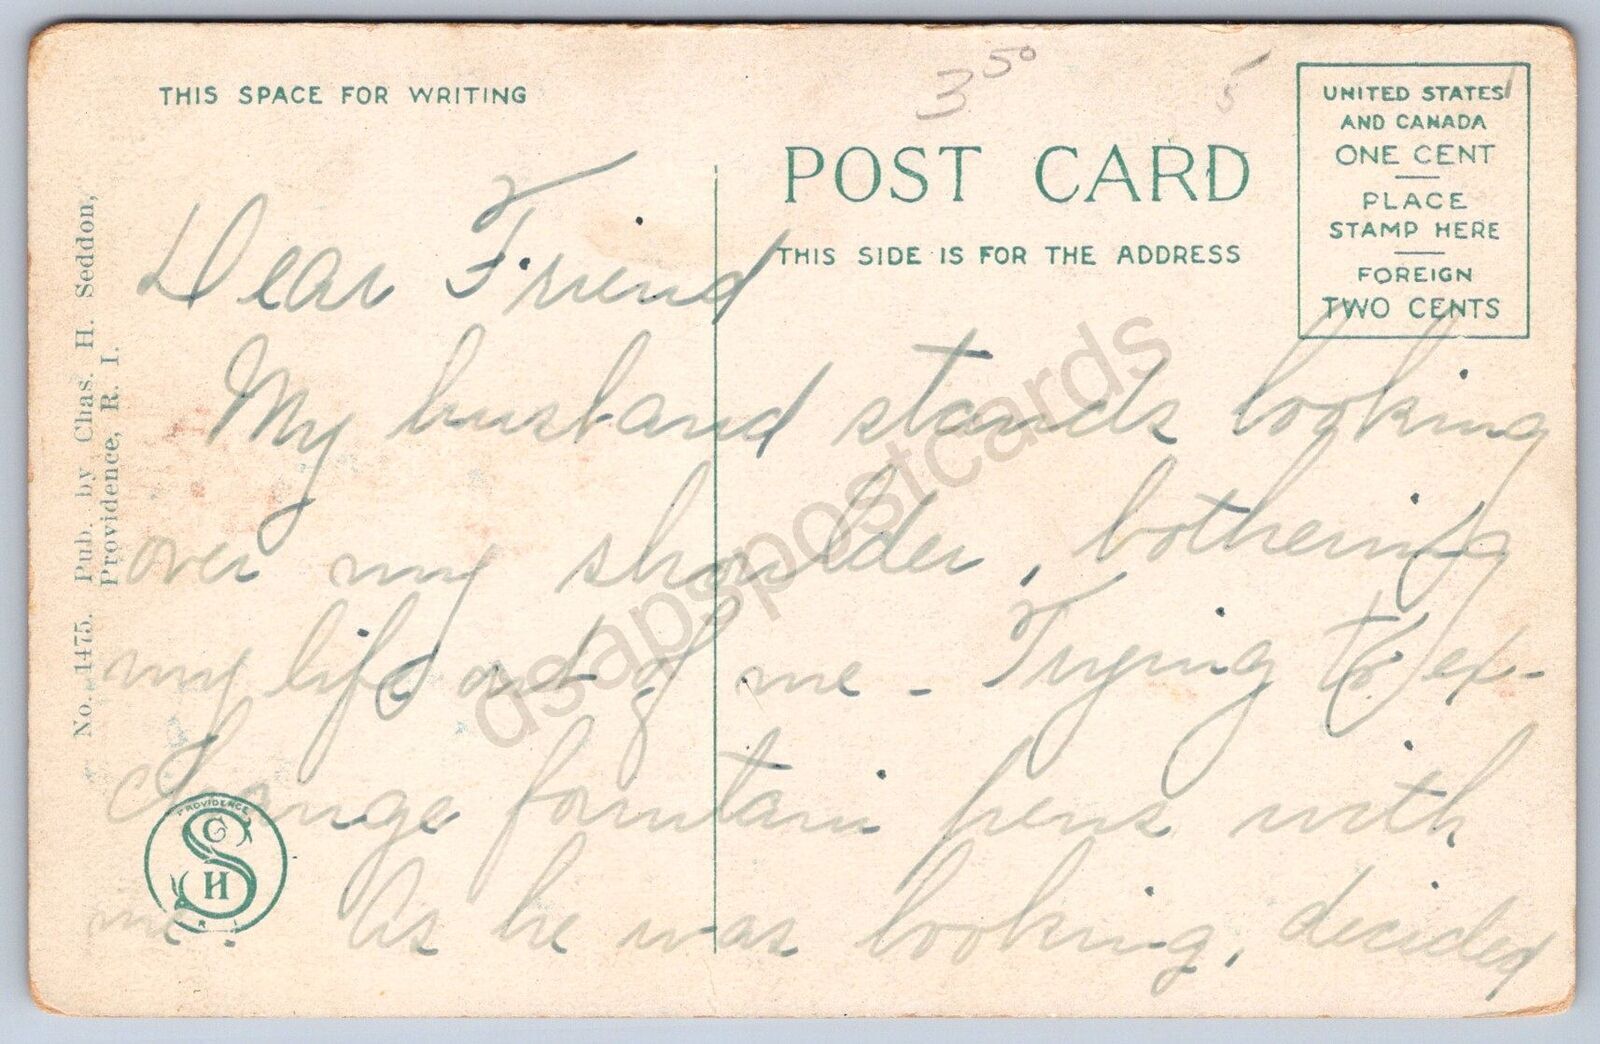 THIS SPACE FOR WRITING
3 50
5
POST CARD
THIS SIDE IS FOR THE ADDRESS
UNITED STATES
AND CANADA
ONE CENT
PLACE
STAMP HERE
FOREIGN
TWO CENTS
No. 1475. Pub. by Chas. H. Seddon,
Providence, R. I.
Dear Friend
My husband stands looking
over my shoulder, bothering
my life out of me - Trying to ex-
change fountain pens with
me. As he was looking, decided
PROVIDENCE
C S H
R I
dsapspostcards